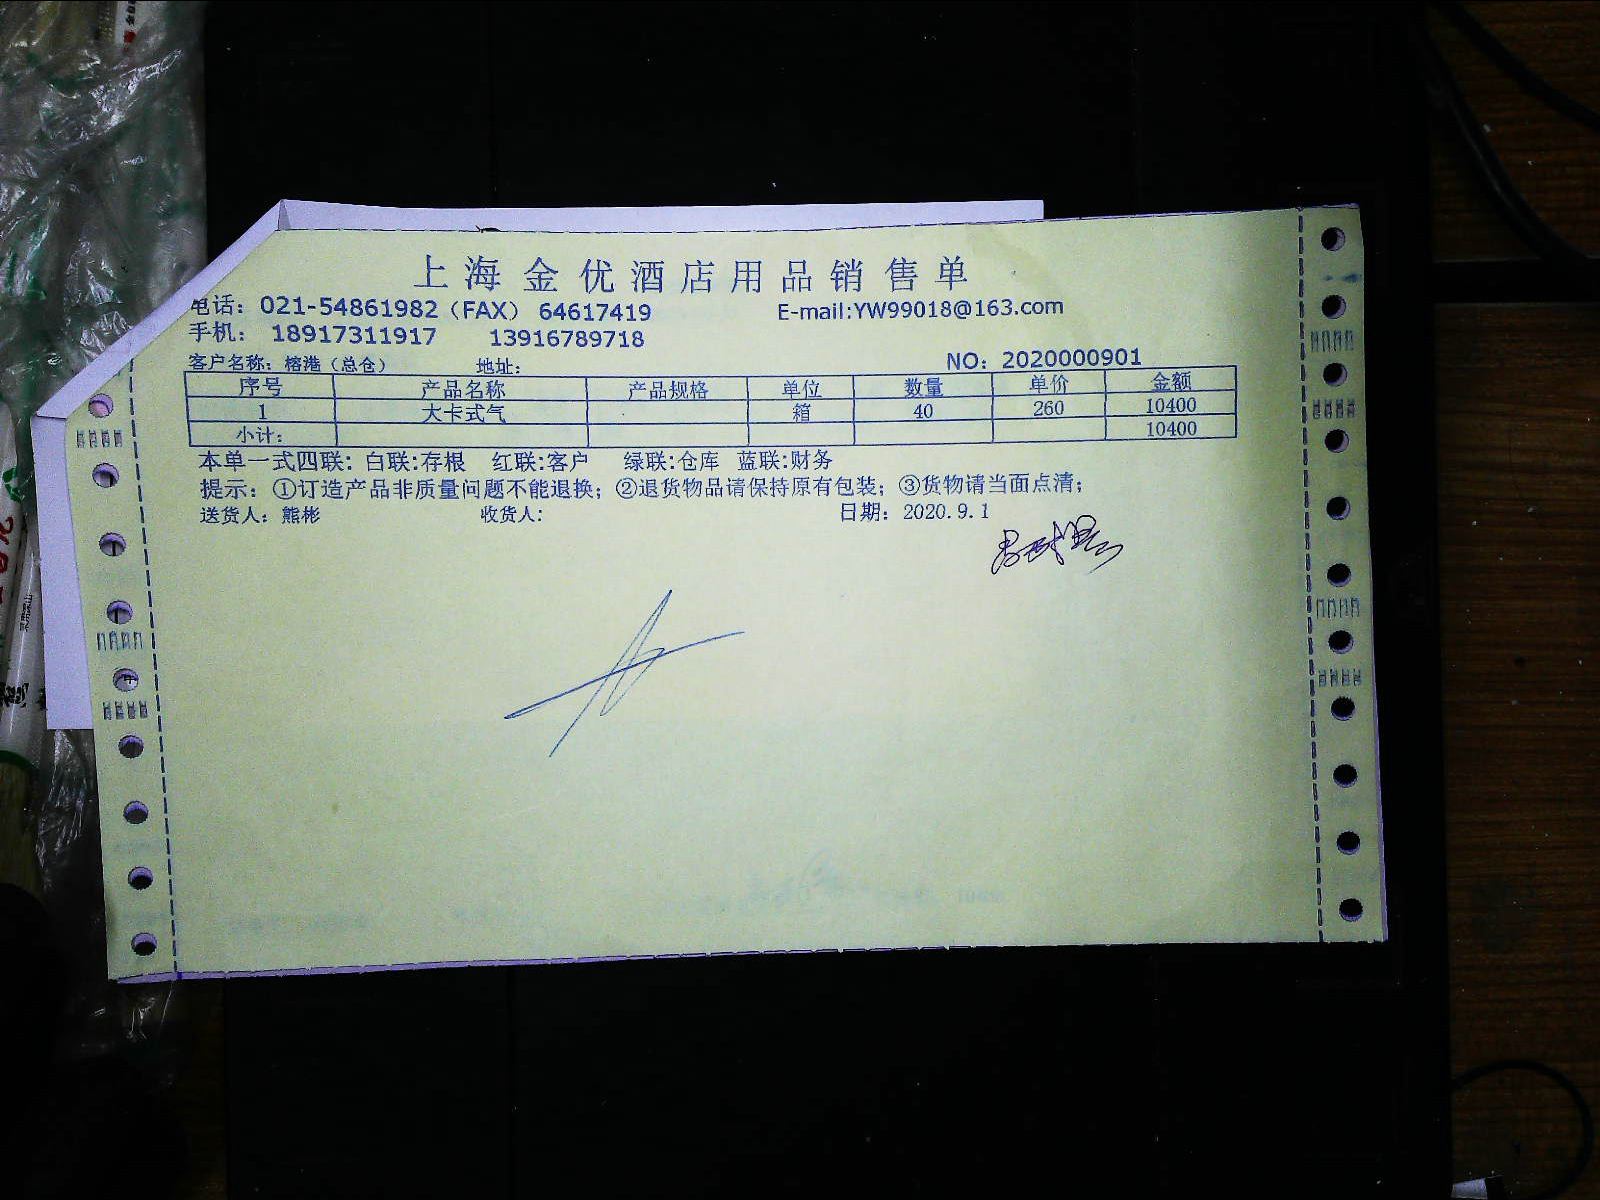 上海金优酒店用品销售单
电话：021-54861982（FAX） 64617419 E-mail:YW99018@163.com
手机： 18917311917 13916789718
客户名称：榕港（总仓） 地址： NO：2020000901
序号 产品名称 产品规格 单位 数量 单价 金额
1 大卡式气 箱 40 260 10400
小计： 10400
本单一式四联：白联:存根 红联:客户 绿联:仓库 蓝联:财务
提示：①订造产品非质量问题不能退换；②退货物品请保持原有包装；③货物请当面点清；
送货人：熊彬 收货人: 日期：2020.9.1